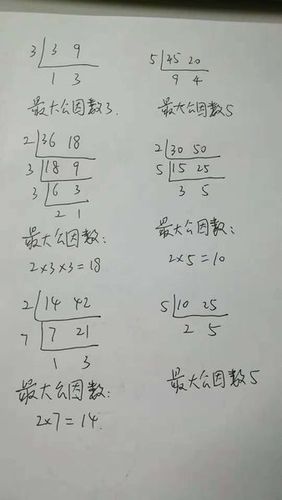 3 3 9
1 3
最大公因数3.
5 45 20
9 4
最大公因数5
2 36 18
3 18 9
3 6 3
2 1
最大公因数:
2×3×3=18
2 30 50
5 15 25
3 5
最大公因数:
2×5=10
2 14 42
7 7 21
1 3
最大公因数:
2×7=14.
5 10 25
2 5
最大公因数5